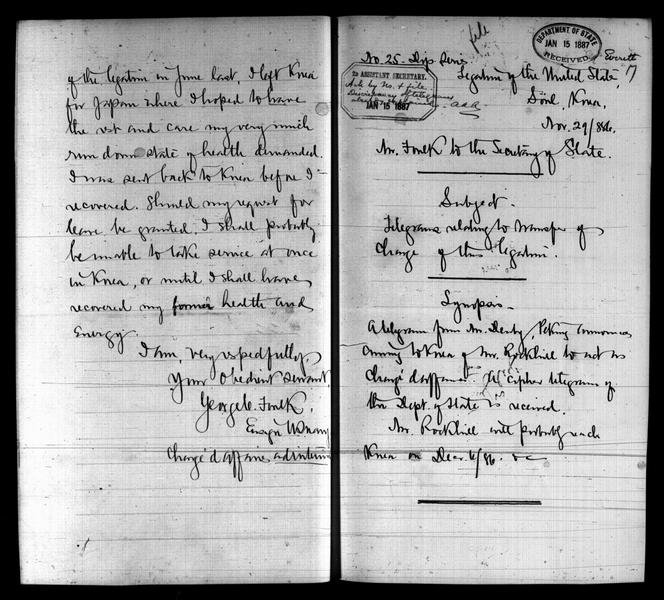 of the legation in June last. I left Korea
for Japan where I hoped to have
the rest and care my very much
run down state of health demanded.
I was sent back to Korea before I
recovered. Should my request for
leave be granted, I shall probably
be unable to take service at once
in Korea, or until I shall have
recovered my former health and
energy.
I am, very respectfully,
Your Obedient servant,
George C. Foulk,
Ensign U.S. Navy
Chargé d'affaires ad interim
file
DEPARTMENT OF STATE
JAN 15 1887
RECEIVED
Everett
No. 25. Dip. Series.
2D ASSISTANT SECRETARY.
Ack by No. & file.
JAN 15 1887
A.A.A.
Legation of the United States,
Söul, Korea,
Nov. 29/886.
Mr. Foulk to the Secretary of State.
Subject.
Telegrams relating to transfer of
charge of this legation.
Synopsis.
A telegram from Mr. Denby, Peking announces
coming to Korea of Mr. Rockhill to act as
Chargé d'affaires. The cipher telegram of
the Dept. of State is received.
Mr. Rockhill will probably reach
Korea on Dec. 6/86.